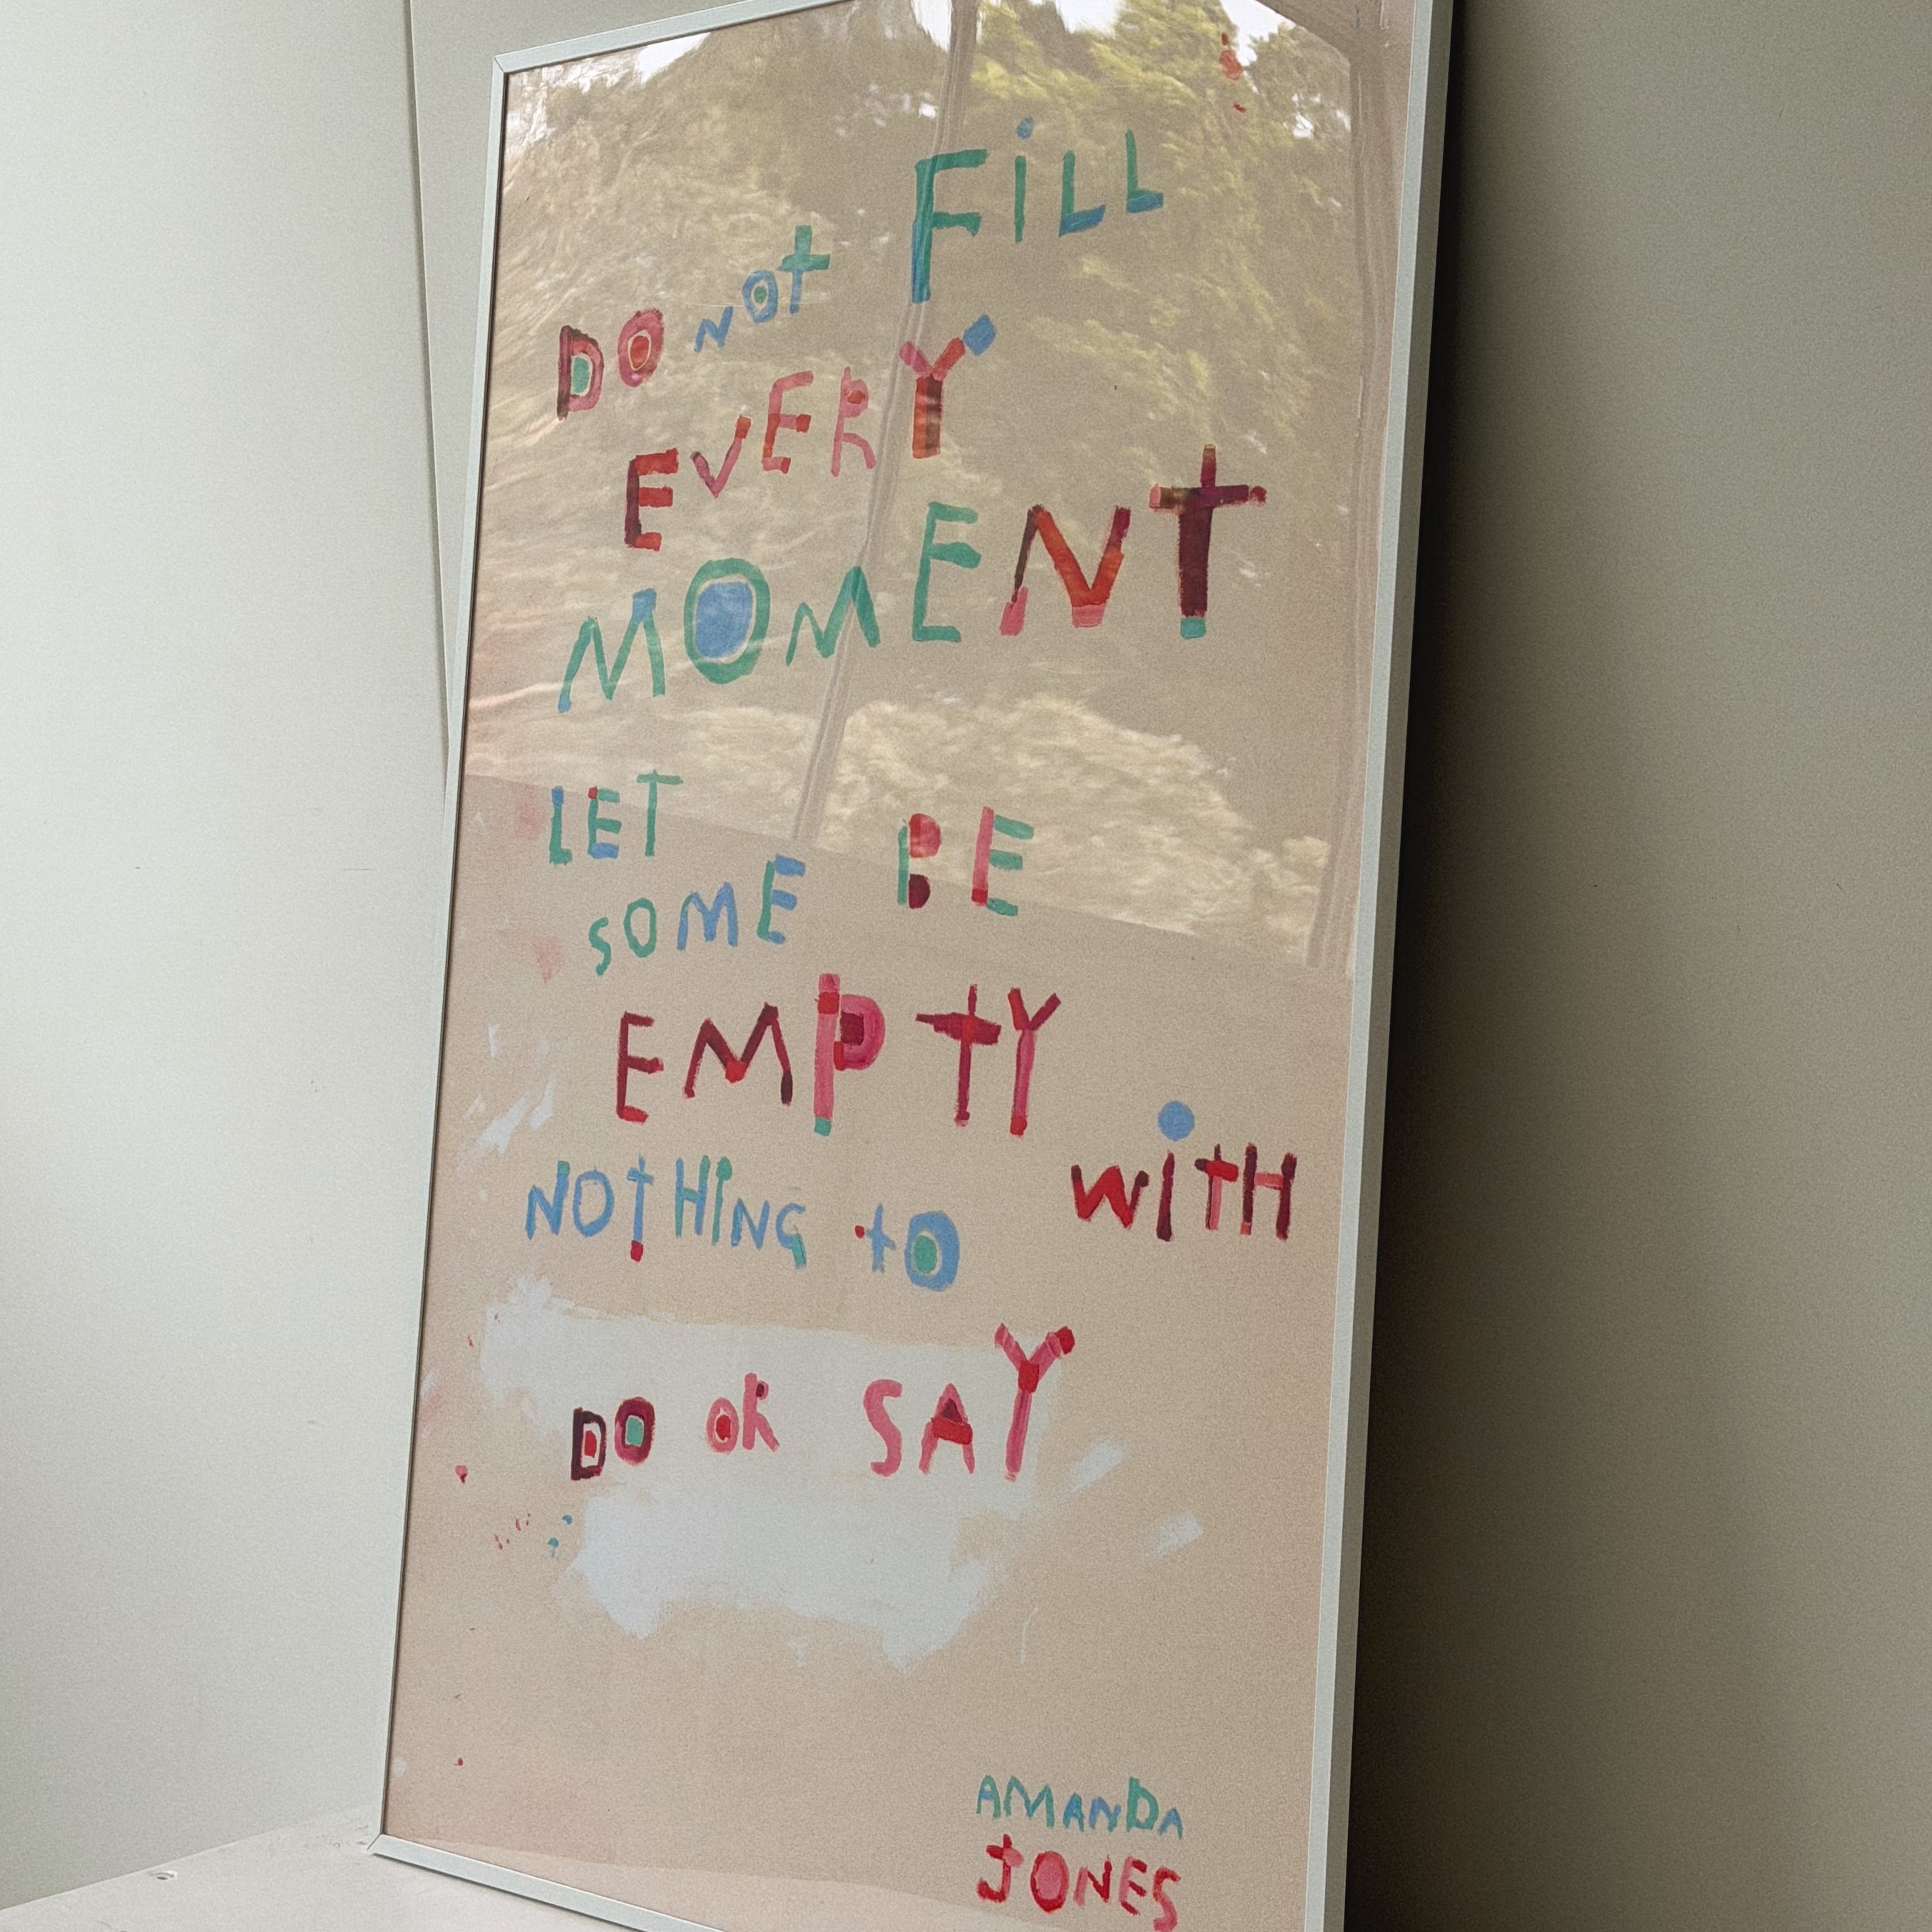 DO NOT FiLL
EVERY
MOMENT
LET
SOME BE
EMPTY
NOTHiNG tO WiTH
DO OR SAY
AMANDA
JONES